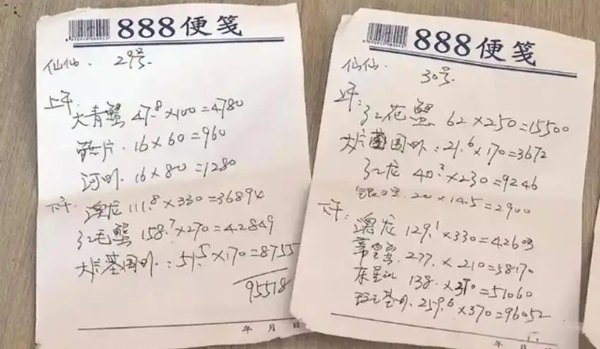 888便笺
仙仙. 29号.
上午: 大青蟹 47.8×100=4780
片. 16×60=960
河虾. 16×80=1280
下午: 澳龙 111.8×330=36894
红毛蟹 158.7×270=42849
大基围虾: 51.5×170=8755
95518
年 月 日
888便笺
仙仙. 30号.
上午: 红花蟹 62×250=15500
大基围虾: 21.6×170=3672
红龙 40.2×230=9246
20×145=2900
下午: 澳龙 129.1×330=42603
277×210=58170
东星斑 138×370=51060
基虾. 259.6×370=96052
年 月 日